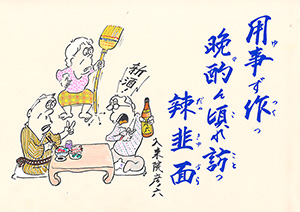 用事ず作っ
晩酌ん頃れ訪っ
辣韮面
入来院彦六
新酒!